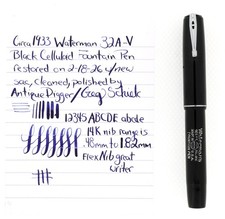 Circa 1933 Waterman 32A-V
Black Celluloid Fountain Pen
restored on 2-18-26 w/new
sac, cleaned, polished by
Antique Digger/Greg Schuck
12345 ABCDE abcde
14K nib range is
.48mm to 1.82mm
Flex Nib great
writer
Waterman's